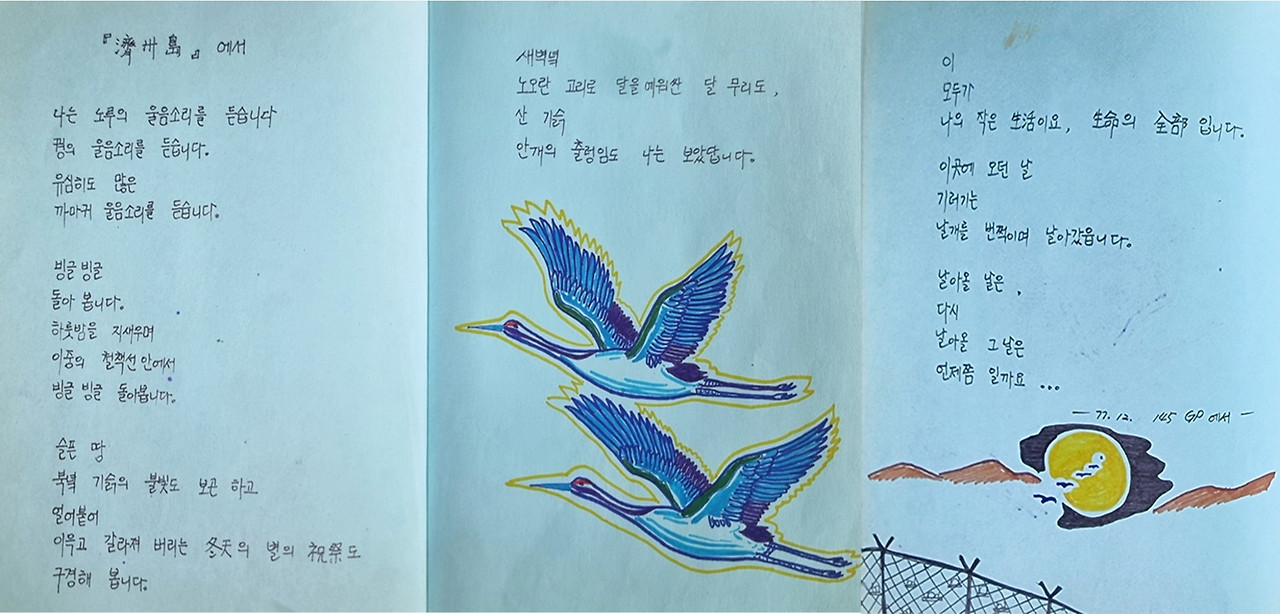 『濟州島』에서
나는 노루의 울음소리를 듣습니다
꿩의 울음소리를 듣습니다.
유심히도 많은
까마귀 울음소리를 듣습니다.
빙글 빙글
돌아 봅니다.
하룻밤을 지새우며
이중의 철책선 안에서
빙글 빙글 돌아봅니다.
슬픈 땅
북녘 기슭의 불빛도 보곤 하고
얼어붙어
이윽고 갈라져 버리는 冬天의 별의 祝祭도
구경해 봅니다.
새벽녘
노오란 고리로 달을 에워싼 달 무리도,
산 기슭
안개의 출렁임도 나는 보았답니다.
이
모두가
나의 작은 生活이요, 生命의 全部 입니다.
이곳에 오던 날
기러기는
날개를 번쩍이며 날아갔읍니다.
날아올 날은,
다시
날아올 그날은
언제쯤 일까요 ...
— 77. 12. 145 GP 에서 —